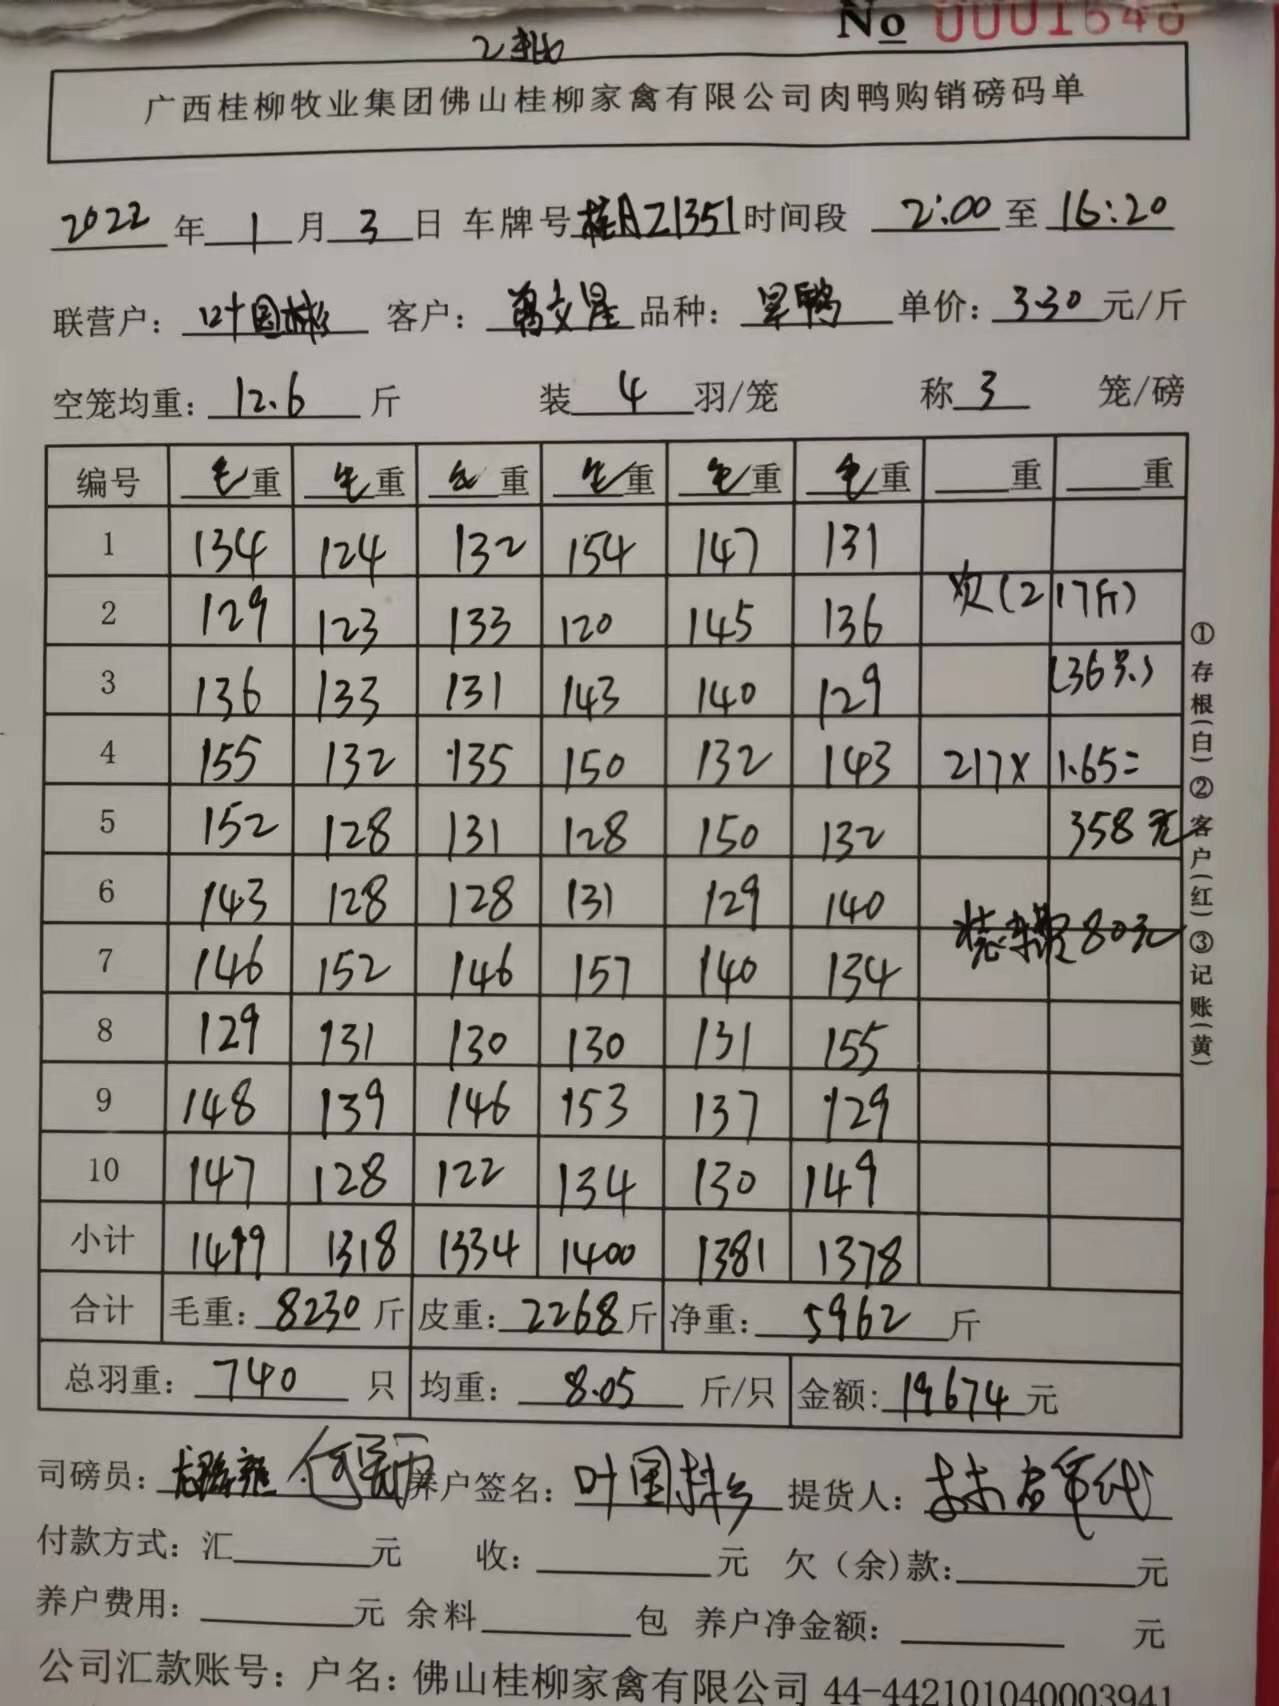 No 0001646
2批
广西桂柳牧业集团佛山桂柳家禽有限公司肉鸭购销磅码单
2022 年 1 月 3 日 车牌号 桂AZ1351 时间段 2:00 至 16:20
联营户: 叶国彬 客户: 文星 品种: 旱鸭 单价: 3.30 元/斤
空笼均重: 12.6 斤 装 4 羽/笼 称 3 笼/磅
编号 毛重 毛重 毛重 毛重 毛重 毛重 重 重
1 134 124 132 154 147 131
2 129 123 133 120 145 136 次(217斤)
3 136 133 131 143 140 129 (36只)
4 155 132 135 150 132 143 217×1.65=
5 152 128 131 128 150 132 358元
6 143 128 128 131 129 140 80元
7 146 152 146 157 140 134
8 129 131 130 130 131 155
9 148 139 146 153 137 129
10 147 128 122 134 130 149
小计 1419 1318 1334 1400 1381 1378
合计 毛重: 8230 斤 皮重: 2268 斤 净重: 5962 斤
总羽重: 740 只 均重: 8.05 斤/只 金额: 19674 元
司磅员: 养户签名: 叶国彬 提货人:
付款方式: 汇 元 收: 元 欠(余)款: 元
养户费用: 元 余料 包 养户净金额: 元
公司汇款账号: 户名: 佛山桂柳家禽有限公司 44-442101040003941
①存根(白)②客户(红)③记账(黄)